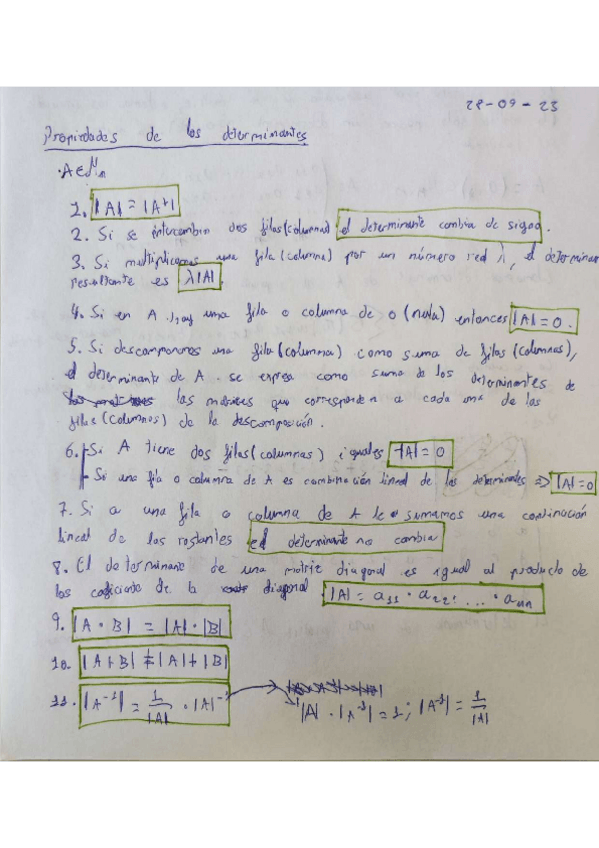 28-09-23
Propiedades de los determinantes
·A∈Mn
1. |A| = |A^t|
2. Si se intercambin dos filas (columnas) el determinante cambia de signo.
3. Si multiplicamos una fila (columna) por un número real λ, el determinan
resultante es λ|A|.
4. Si en A hay una fila o columna de 0 (nula) entonces |A| = 0.
5. Si descomponemos una fila (columna) como suma de filas (columnas),
el determinante de A se expresa como suma de los determinantes de
las matrices que corresponden a cada una de las
filas (columnas) de la descomposición.
6. - Si A tiene dos filas (columnas) iguales |A| = 0
- Si una fila o columna de A es combinación lineal de las determinantes => |A| = 0
7. Si a una fila o columna de A le sumamos una combinación
lineal de las restantes el determinante no cambia
8. El determinante de una matriz diagonal es igual al producto de
los coeficiente de la diagonal |A| = a11 · a22 · ... · ann
9. |A · B| = |A| · |B|
10. |A+B| ≠ |A| + |B|
11. |A^-1| = 1/|A| · |A|^-1
|A| · |A^-1| = 1; |A^-1| = 1/|A|